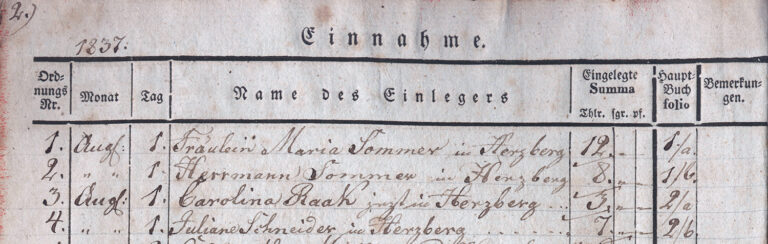 2.)
1837.
Einnahme.
Ord-
nungs
Nr.
Monat
Tag
Name des Einlegers
Eingelegte
Summa
Thlr. sgr. pf.
Haupt-
Buch
folio
Bemerkun-
gen.
1. Augl: 1. Fräulein Maria Sommer in Herzberg 12. „ „ 1/a.
2. „ „ 1. Herrmann Sommer in Herzberg 8. „ „ 1/b.
3. Augl: 1. Carolina Raak in Herzberg 5. „ „ 2/a
4. „ „ 1. Juliane Schneider in Herzberg 7. „ „ 2/b.